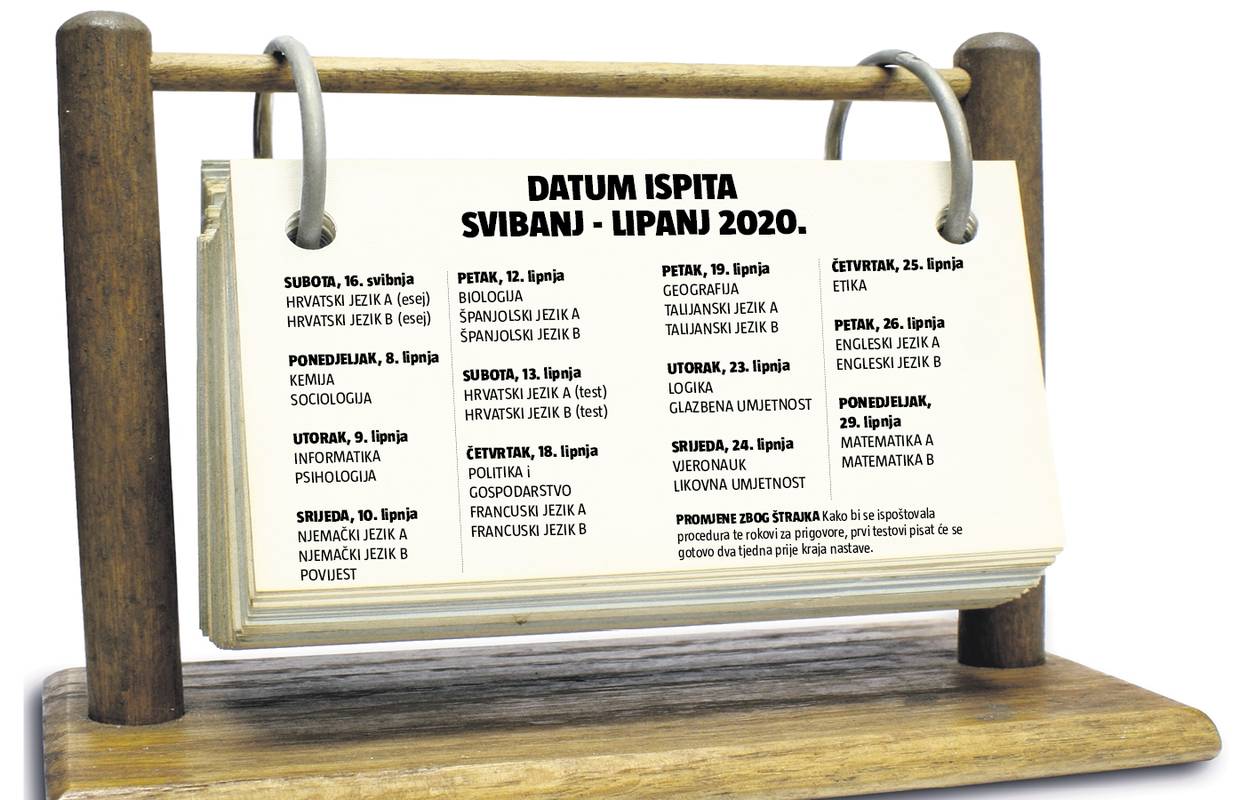 DATUM ISPITA
SVIBANJ - LIPANJ 2020.
SUBOTA, 16. svibnja
HRVATSKI JEZIK A (esej)
HRVATSKI JEZIK B (esej)
PONEDJELJAK, 8. lipnja
KEMIJA
SOCIOLOGIJA
UTORAK, 9. lipnja
INFORMATIKA
PSIHOLOGIJA
SRIJEDA, 10. lipnja
NJEMAČKI JEZIK A
NJEMAČKI JEZIK B
POVIJEST
PETAK, 12. lipnja
BIOLOGIJA
ŠPANJOLSKI JEZIK A
ŠPANJOLSKI JEZIK B
SUBOTA, 13. lipnja
HRVATSKI JEZIK A (test)
HRVATSKI JEZIK B (test)
ČETVRTAK, 18. lipnja
POLITIKA i
GOSPODARSTVO
FRANCUSKI JEZIK A
FRANCUSKI JEZIK B
PETAK, 19. lipnja
GEOGRAFIJA
TALIJANSKI JEZIK A
TALIJANSKI JEZIK B
UTORAK, 23. lipnja
LOGIKA
GLAZBENA UMJETNOST
SRIJEDA, 24. lipnja
VJERONAUK
LIKOVNA UMJETNOST
ČETVRTAK, 25. lipnja
ETIKA
PETAK, 26. lipnja
ENGLESKI JEZIK A
ENGLESKI JEZIK B
PONEDJELJAK,
29. lipnja
MATEMATIKA A
MATEMATIKA B
PROMJENE ZBOG ŠTRAJKA Kako bi se ispoštovala
procedura te rokovi za prigovore, prvi testovi pisat će se
gotovo dva tjedna prije kraja nastave.